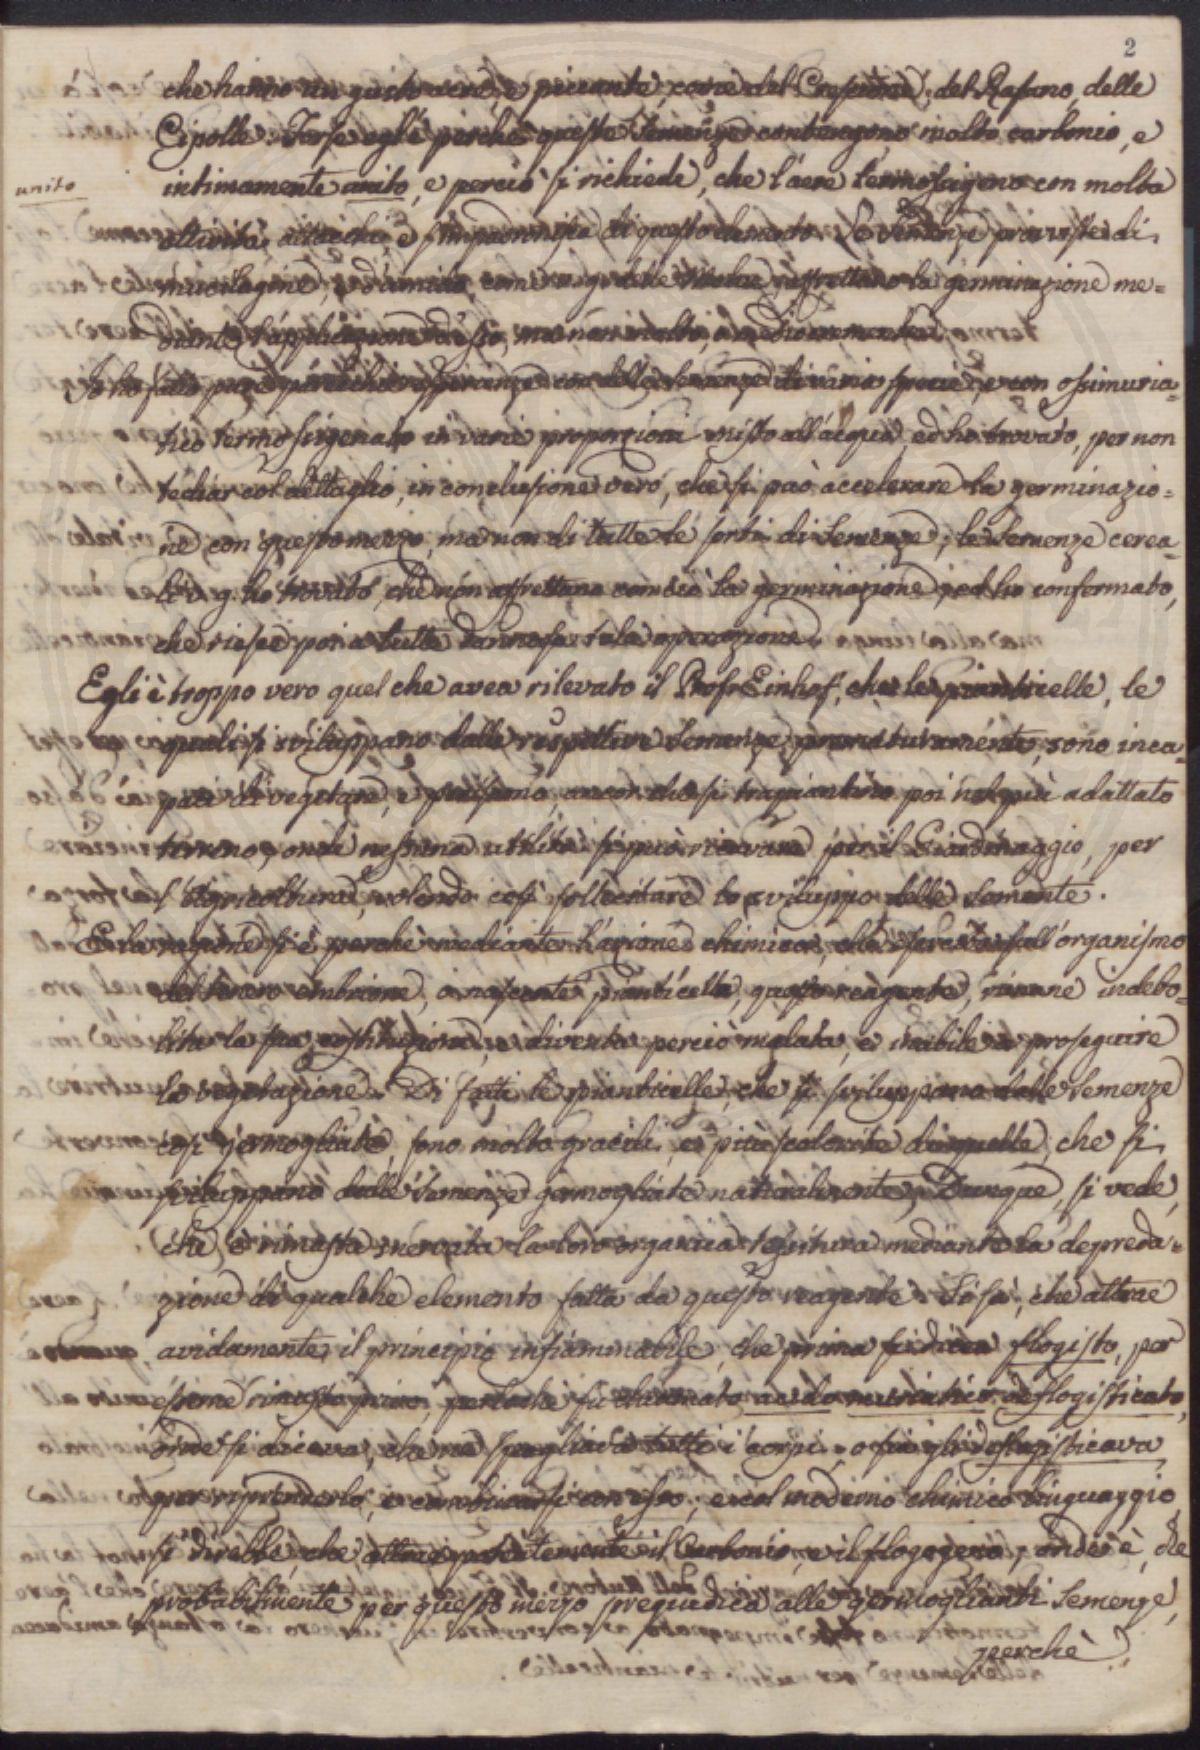 2
che hanno un gusto acre, e piccante, come del Crescione, del Rafano, delle
Cipolle. Forse egli è perché queste Semenze contengono molto carbonio, e
unito
intimamente unito, e perciò si richiede, che l'aere termossigeno con molta
attività attacchi, e s'impadronisca di questo elemento. Le Semenze provviste di
mucilagine, e d'amido, come v. g. delle affrettano la germinazione me=
diante l'applicazione d'esso, ma non molto, o mediocremente.
Io ho fatto pure parecchie esperienze con delle Semenze di varie specie, e con ossimuria=
tico termossigenato in varie proporzioni misto all'acqua, ed ho trovato, per non
tediar col dettaglio, in conclusione vero, che si può accelerare la germinazio=
ne con questo mezzo, ma non di tutte le sorti di Semenze; le Semenze cerea=
li v. g. ho trovato, che non affrettano con ciò la germinazione, ed ho confermato,
che riesce poi a tutte dannosa tale operazione.
Egli è troppo vero quel che avea rilevato il Profr. Einhof, che le pianticelle, le
quali si sviluppano dalle rispettive Semenze prematuramente, sono inca=
paci di vegetare, e periscono, ancorché si trapiantino poi nel più adattato
terreno, onde nessuna utilità si può ricavare per il Giardinaggio, per
l'Agricoltura, volendo così sollecitare lo sviluppo delle Semente.
E la ragione si è perché mediante l'azione chimica, che esercita sull'organismo
del tenero embrione, o nascente pianticella, questo reagente, rimane indebo=
lita la sua costituzione, e diventa perciò malata, e inabile a proseguire
la vegetazione. Di fatti le pianticelle, che si sviluppano dalle Semenze
così germogliate, sono molto gracili, e più scolorite di quelle, che si
sviluppano dalle Semenze germogliate naturalmente. Dunque, si vede,
che è rimasta snervata la loro organica tessitura mediante la depreda=
zione di qualche elemento fatta da questo reagente. Si sa, che attrae
avidamente il principio infiammabile, che prima si dicea flogisto, per
esserne rimasto privo, perloché fu chiamato acido muriatico deflogisticato,
onde si diceva, che ne spogliava tutti i corpi, o sia gli deflogisticava,
per riprenderlo, e combinarsi con esso; e col moderno chimico linguaggio
si direbbe, che attrae potentemente il Carbonio, e il flogogeno, onde è, che
probabilmente per questo mezzo pregiudica alle germoglianti Semenze,
perchè